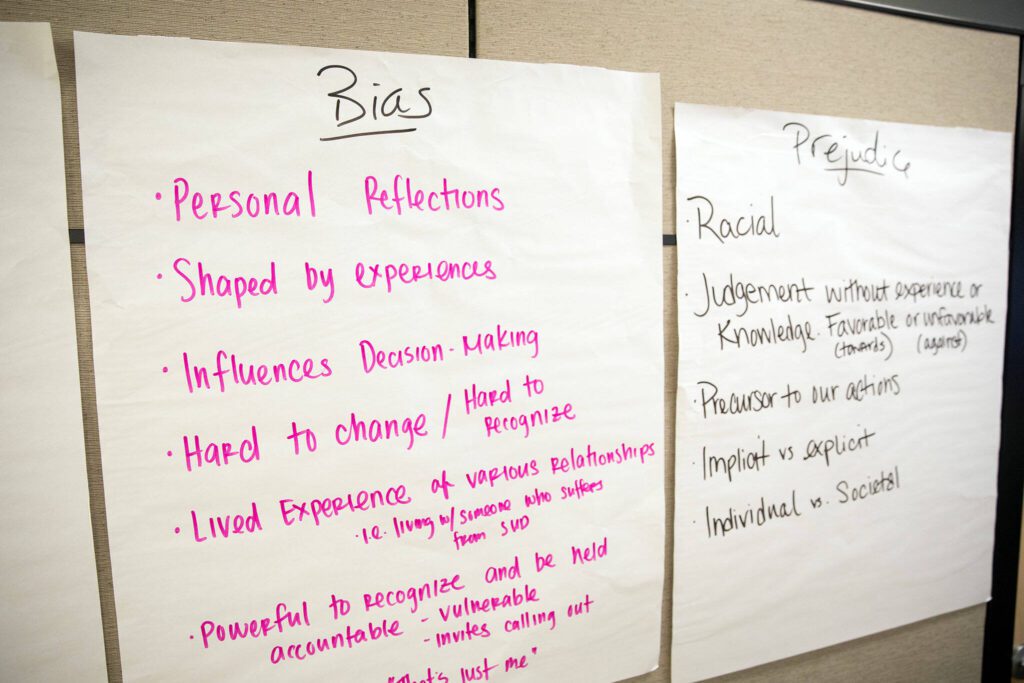 Bias
· Personal Reflections
· Shaped by experiences
· Influences Decision-Making
· Hard to change / Hard to
Recognize
· Lived Experience of various Relationships
· i.e. living w/ someone who suffers
from SUD
· Powerful to recognize and be held
accountable - vulnerable
- invites calling out
just me"
Prejudice
· Racial
· Judgement without experience or
Knowledge. Favorable or unfavorable
(towards) (against)
· Precursor to our actions
· Implicit vs explicit
· Individual vs. Societal